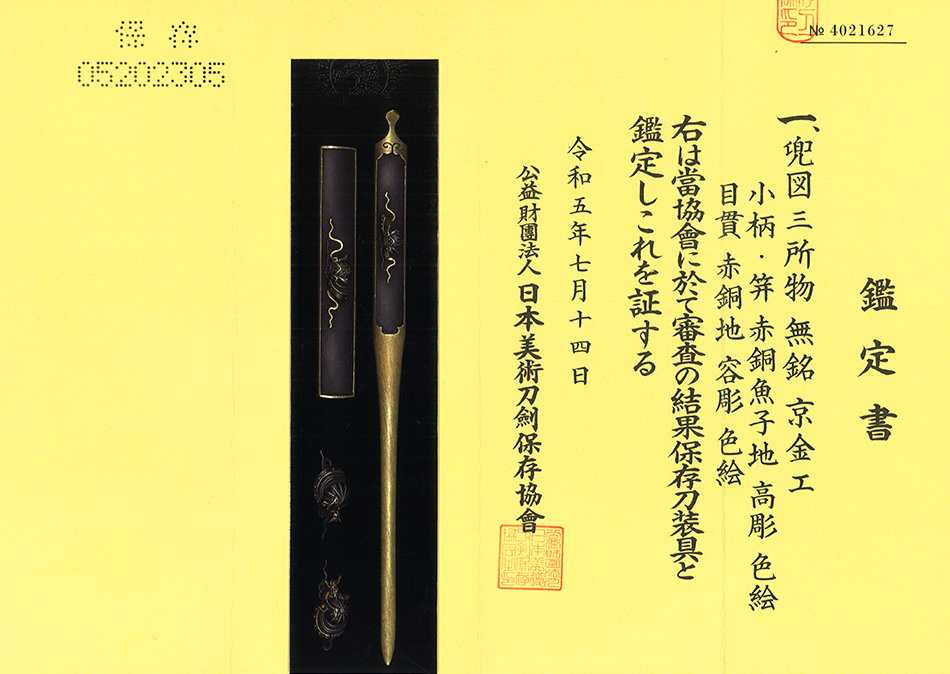 保存
05202305
№ 4021627
鑑定書
一、兜図三所物 無銘 京金工
小柄・笄 赤銅魚子地 高彫 色絵
目貫 赤銅地 容彫 色絵
右は當協會に於て審査の結果保存刀装具と
鑑定しこれを証する
令和五年七月十四日
公益財團法人 日本美術刀劍保存協會